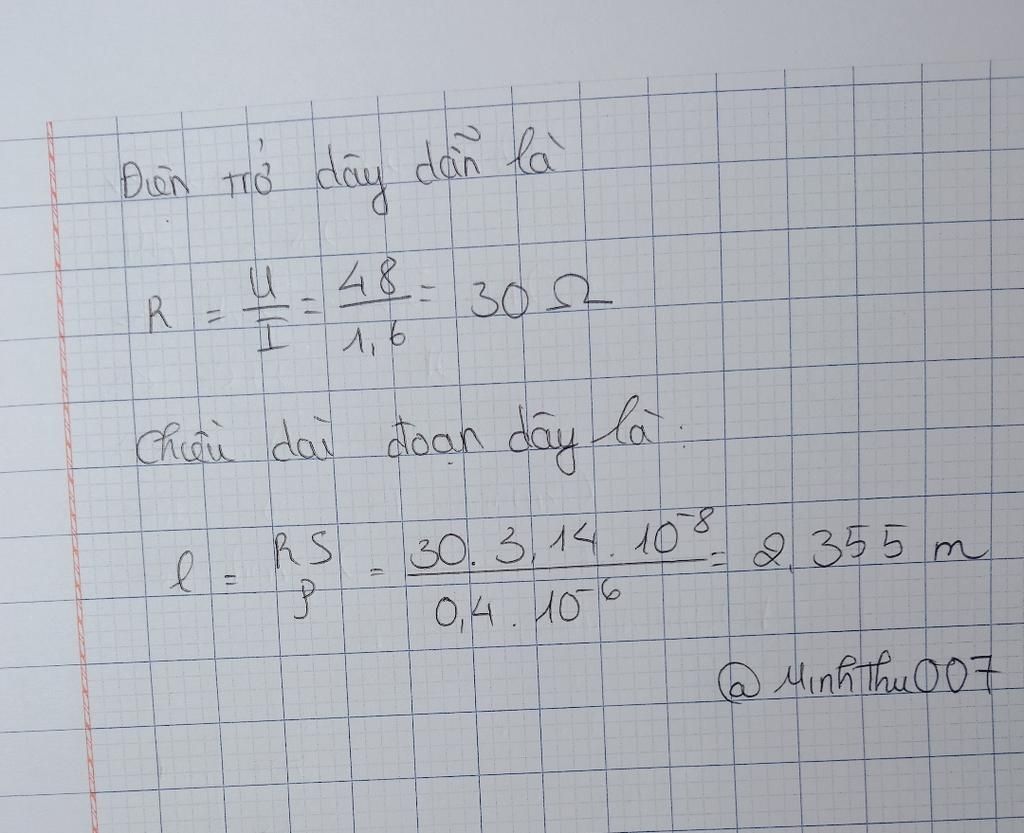 Điện trở dây dẫn là
R = U/I = 48/1,6 = 30 Ω
Chiều dài đoạn dây là:
l = RS/ρ = 30.3,14.10⁻⁸/0,4.10⁻⁶ = 2,355 m
@MinhThu007